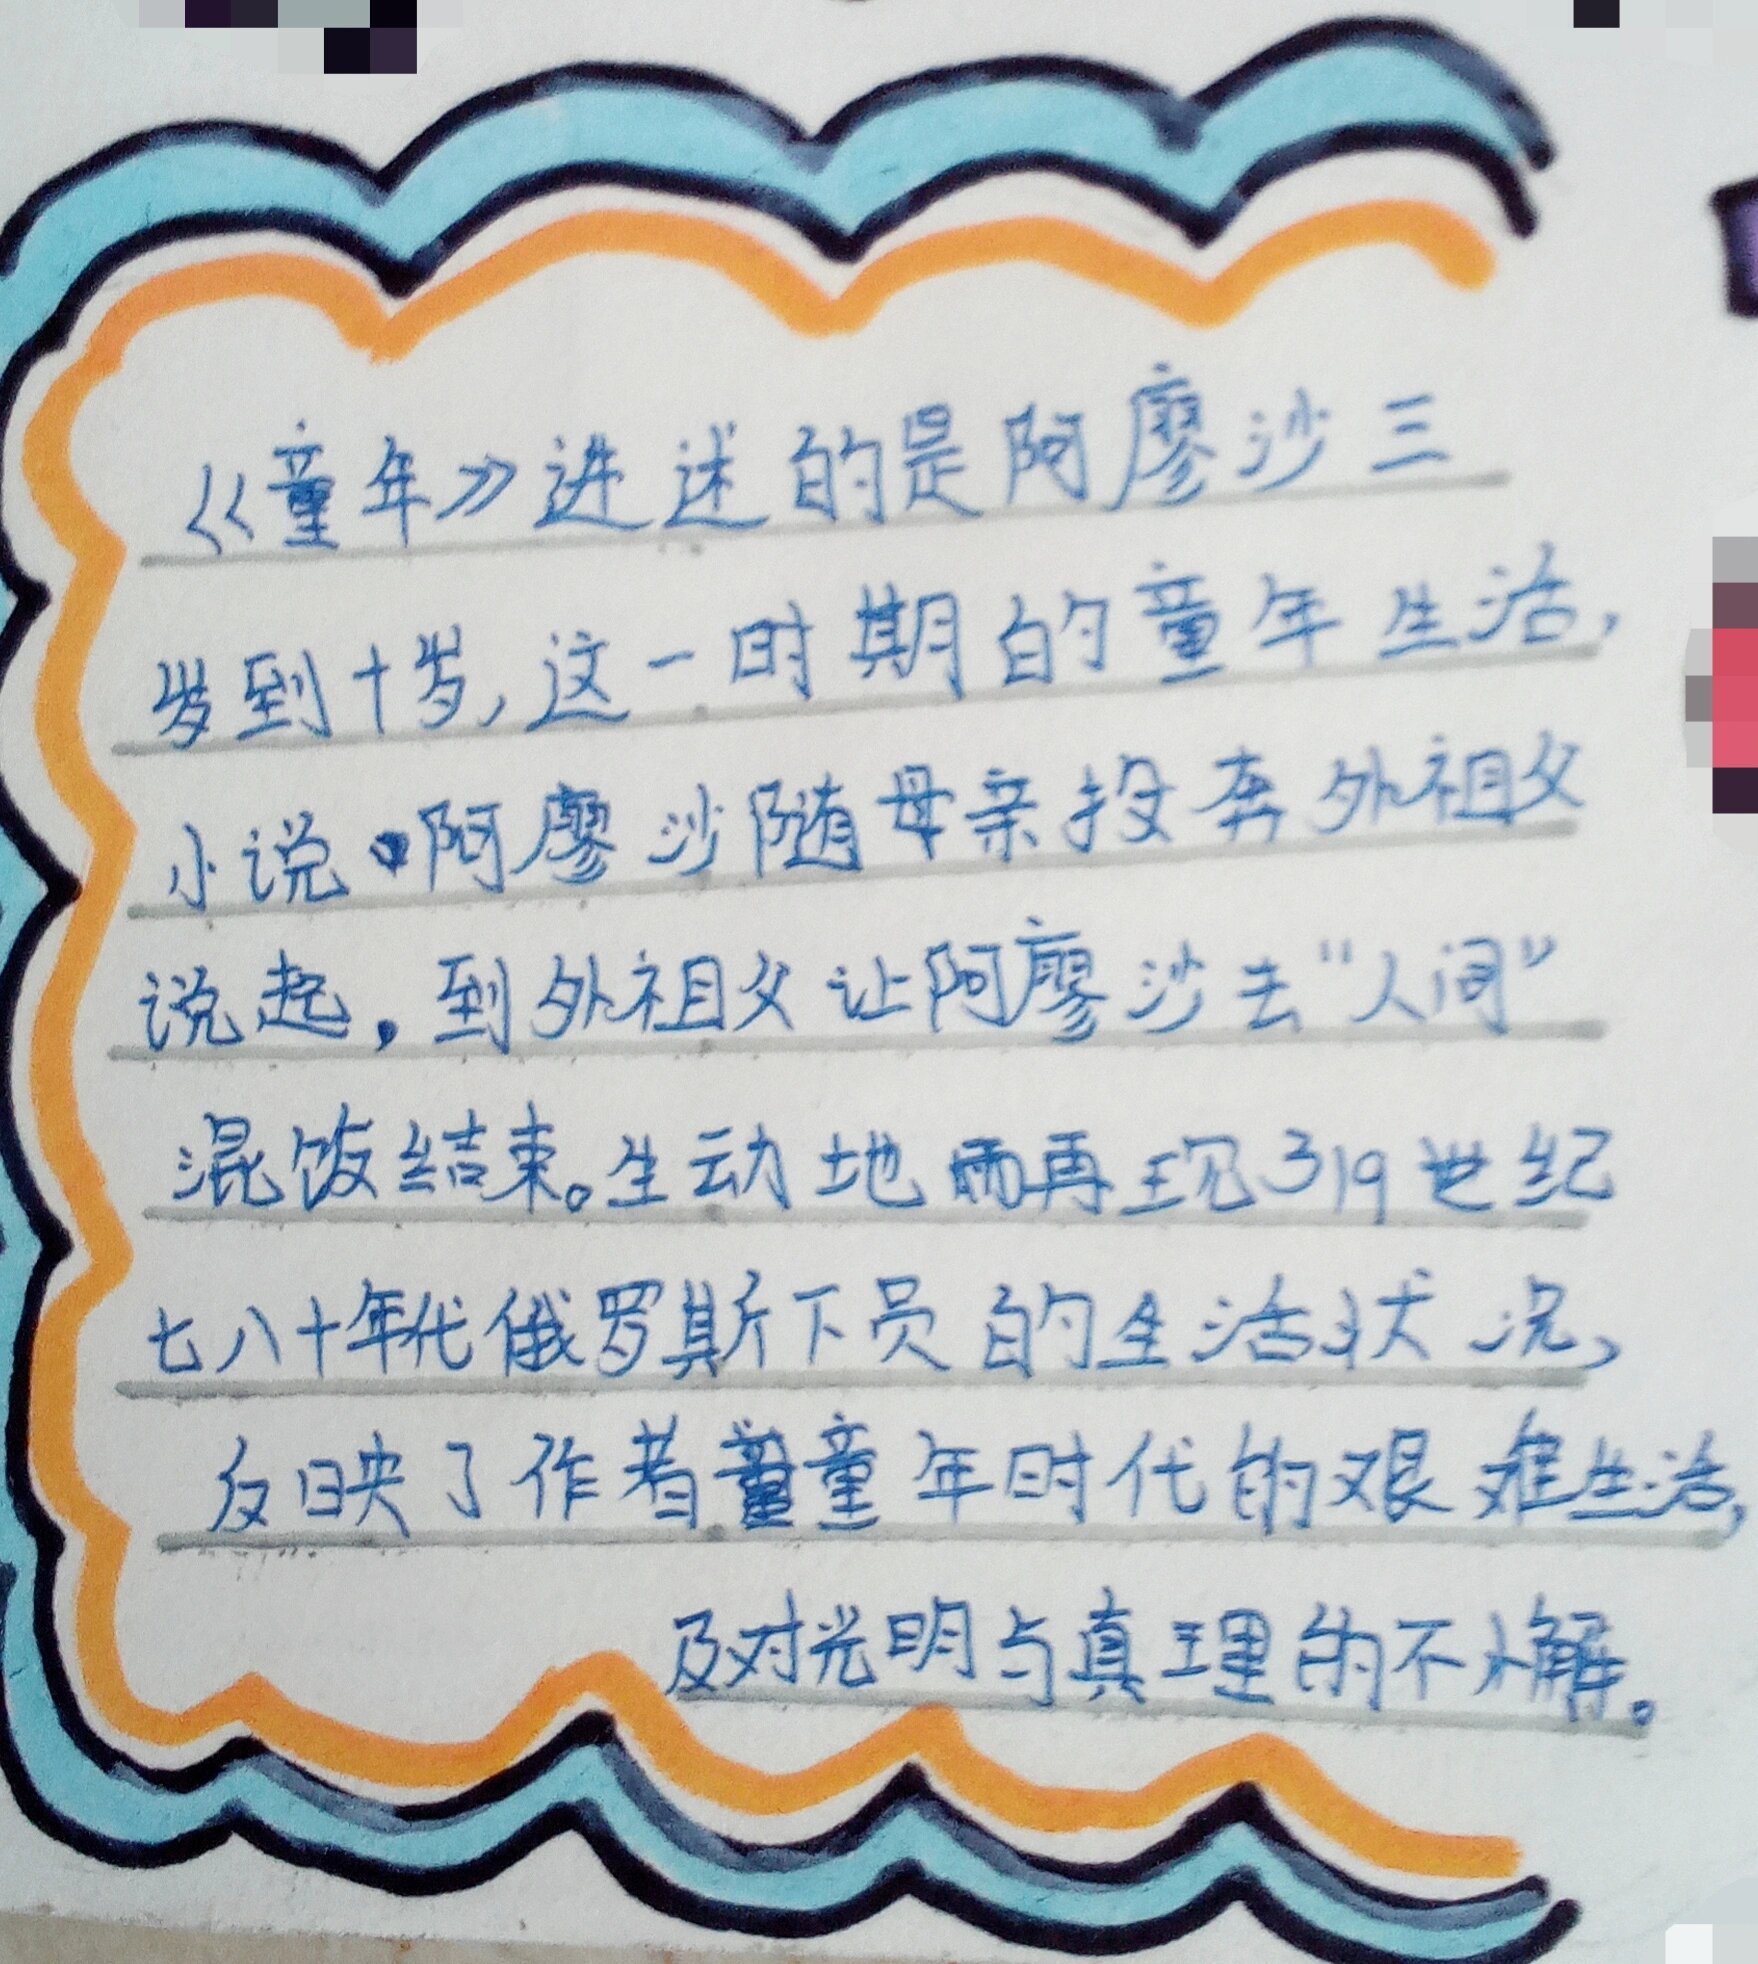 《童年》进述的是阿廖沙三
岁到十岁,这一时期的童年生活,
小说 阿廖沙随母亲投奔外祖父
说起,到外祖父让阿廖沙去“人间”
混饭结束。生动地 再现了19世纪
七八十年代俄罗斯下员的生活状况,
反映了作者童年时代的艰难生活,
及对光明与真理的不小解。